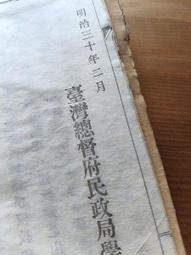 明治三十年二月
臺灣總督府民政局學